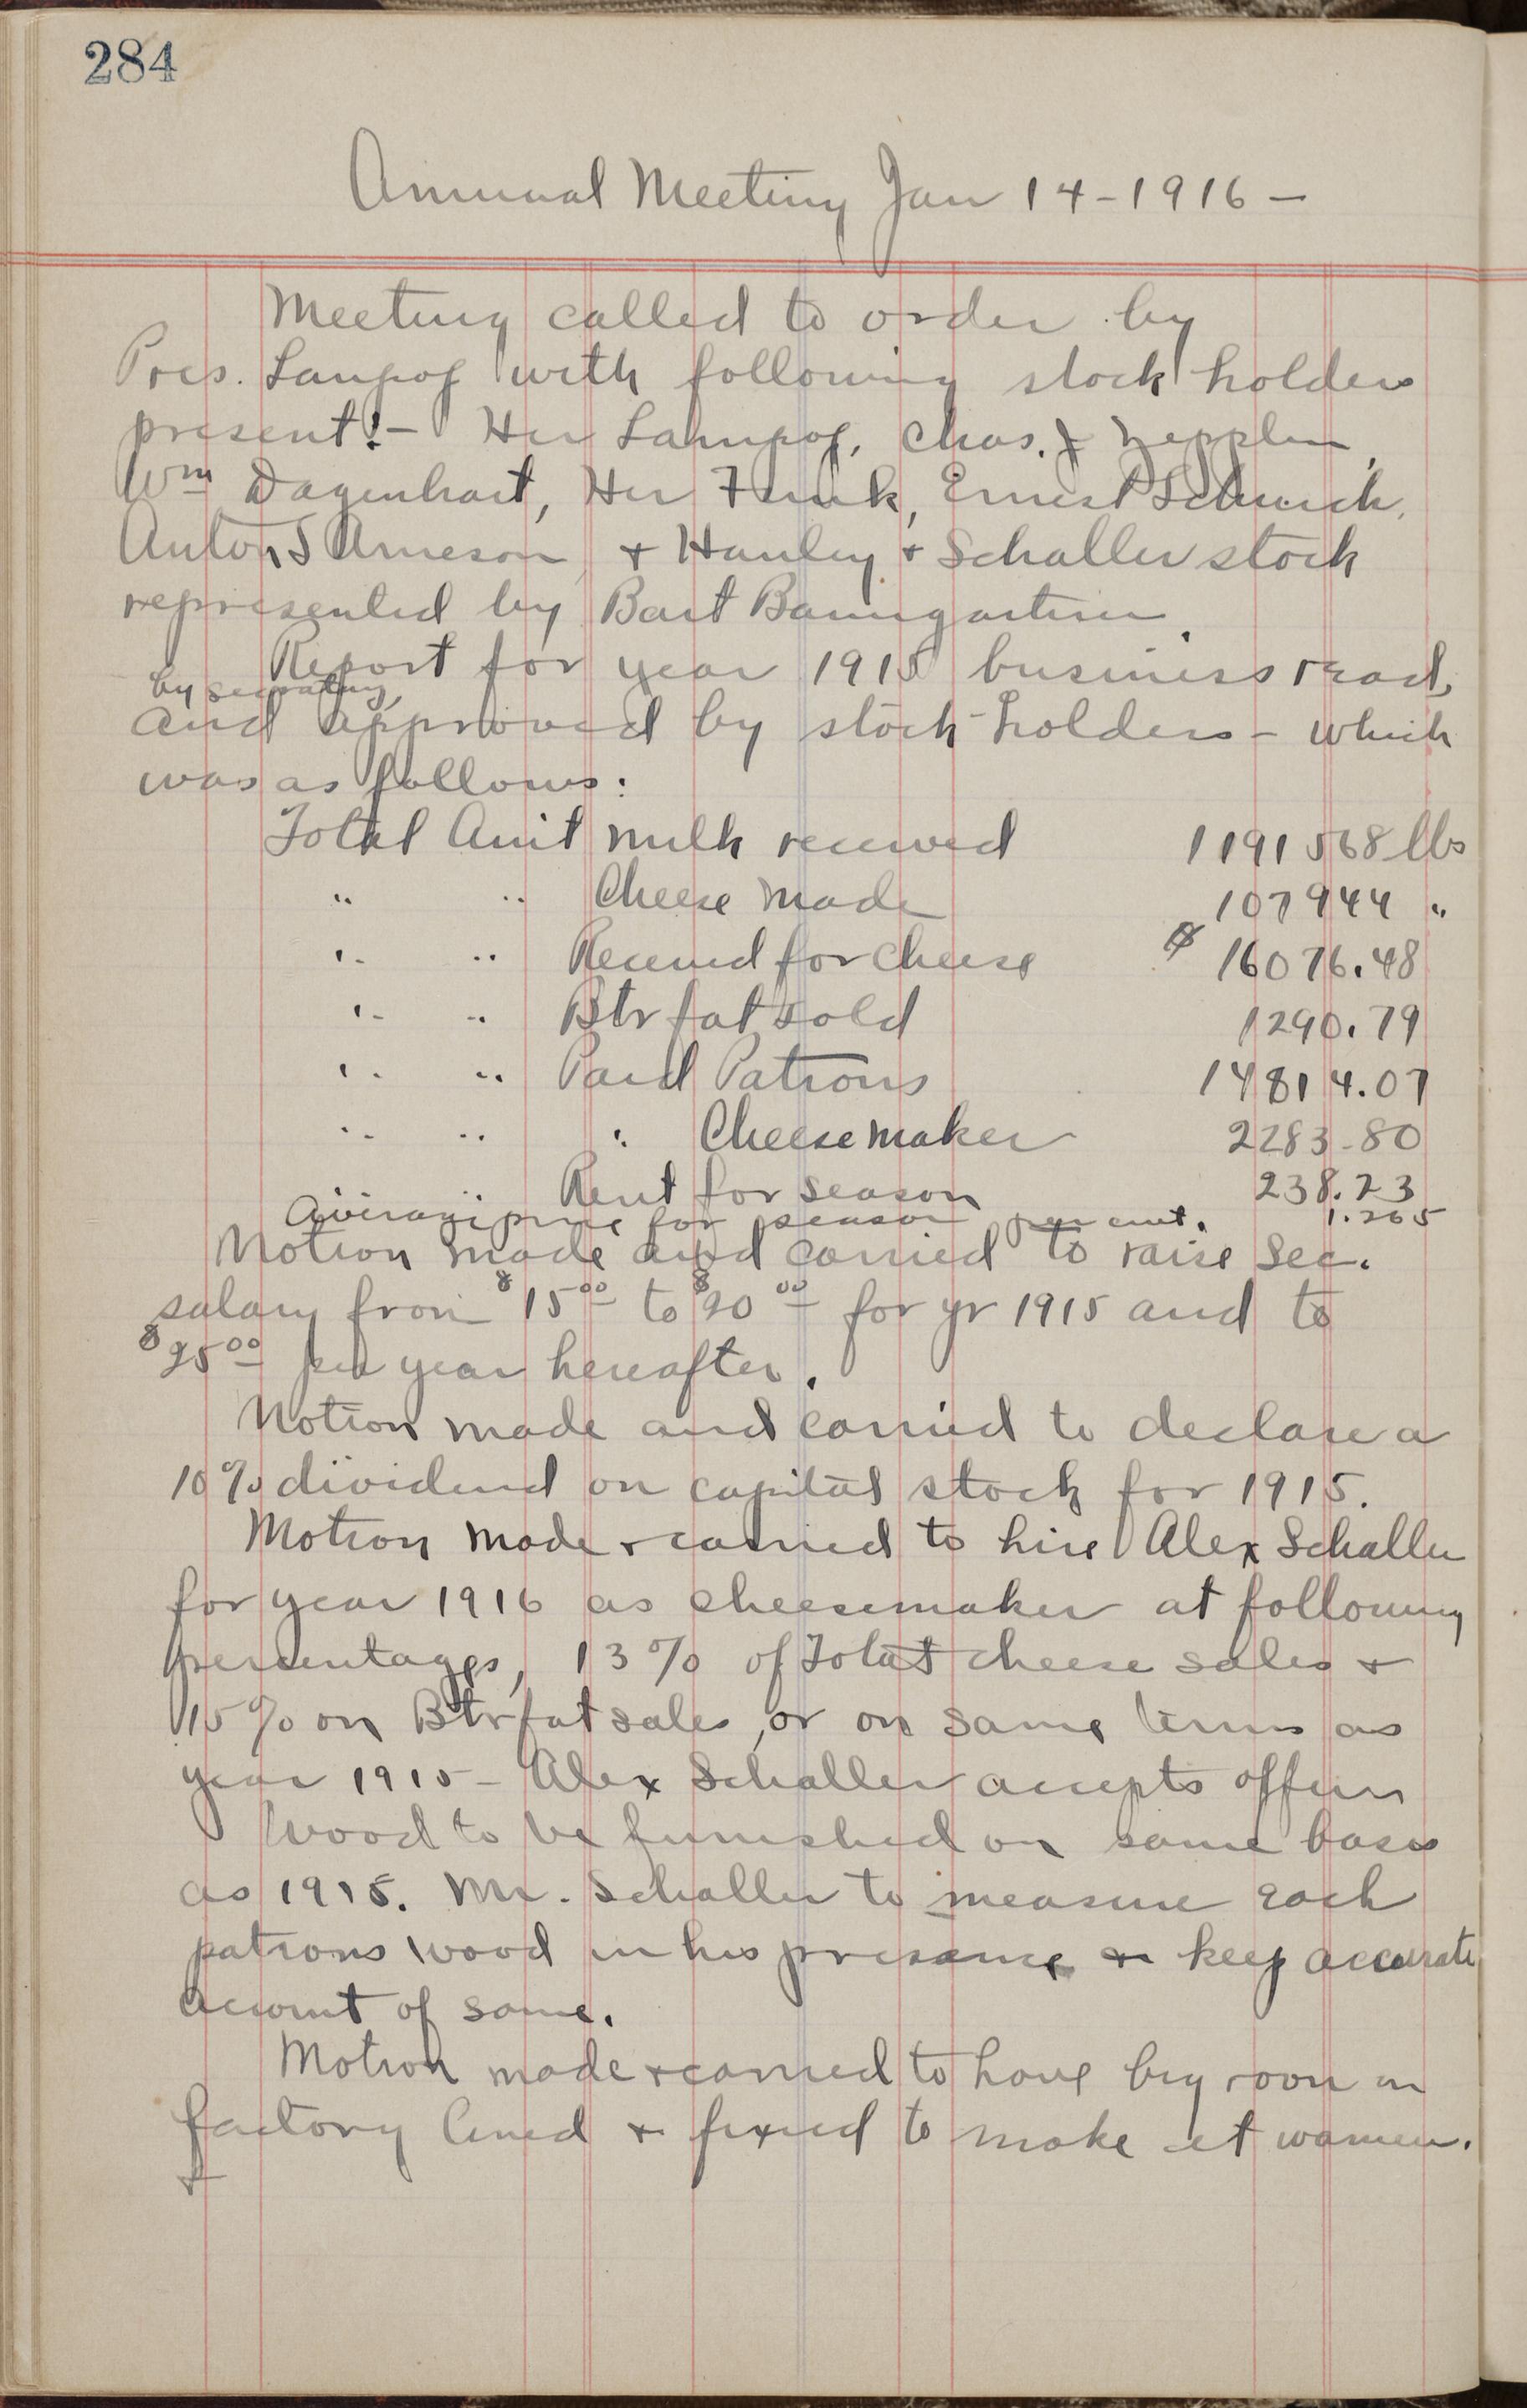 284
Annual Meeting Jan 14-1916-
Meeting called to order by
Pres. Lampog with following stock holders
present:- Her Lampog, Chas. Zepplin,
Wm Dagenhart, Her Funk, Ernest
Anton S Arneson & Hanley & Schaller stock
represented by Bart Baumgartner.
Report for year 1915 business read,
by secratary,
and approved by stock-holders - which
was as follows:
Total Amt milk received 1191568 lbs
" " Cheese Made 107944 "
" " Received for cheese $16076.48
" " Btr fat sold 1290.79
" " Paid Patrons 14814.07
" " " Cheesemaker 2283-80
Rent for season 238.23
Average price for season per cwt. 1.265
Motion made and carried to raise Sec.
salary from $15 00 to $20 00 for yr 1915 and to
$25 00 per year hereafter.
Motion made and carried to declare a
10% dividend on capital stock for 1915.
Motion made & carried to hire Alex Schaller
for year 1916 as cheesemaker at following
percentages, 13% of Total cheese sales &
15% on Btr fat sales, or on same terms as
year 1915- Alex Schaller accepts offer
Wood to be furnished on same basis
as 1915. Mr. Schaller to measure each
patrons wood in his presence & keep accurate
account of same.
Motion made & carried to have big room in
factory lined & fixed to make it warmer.
&